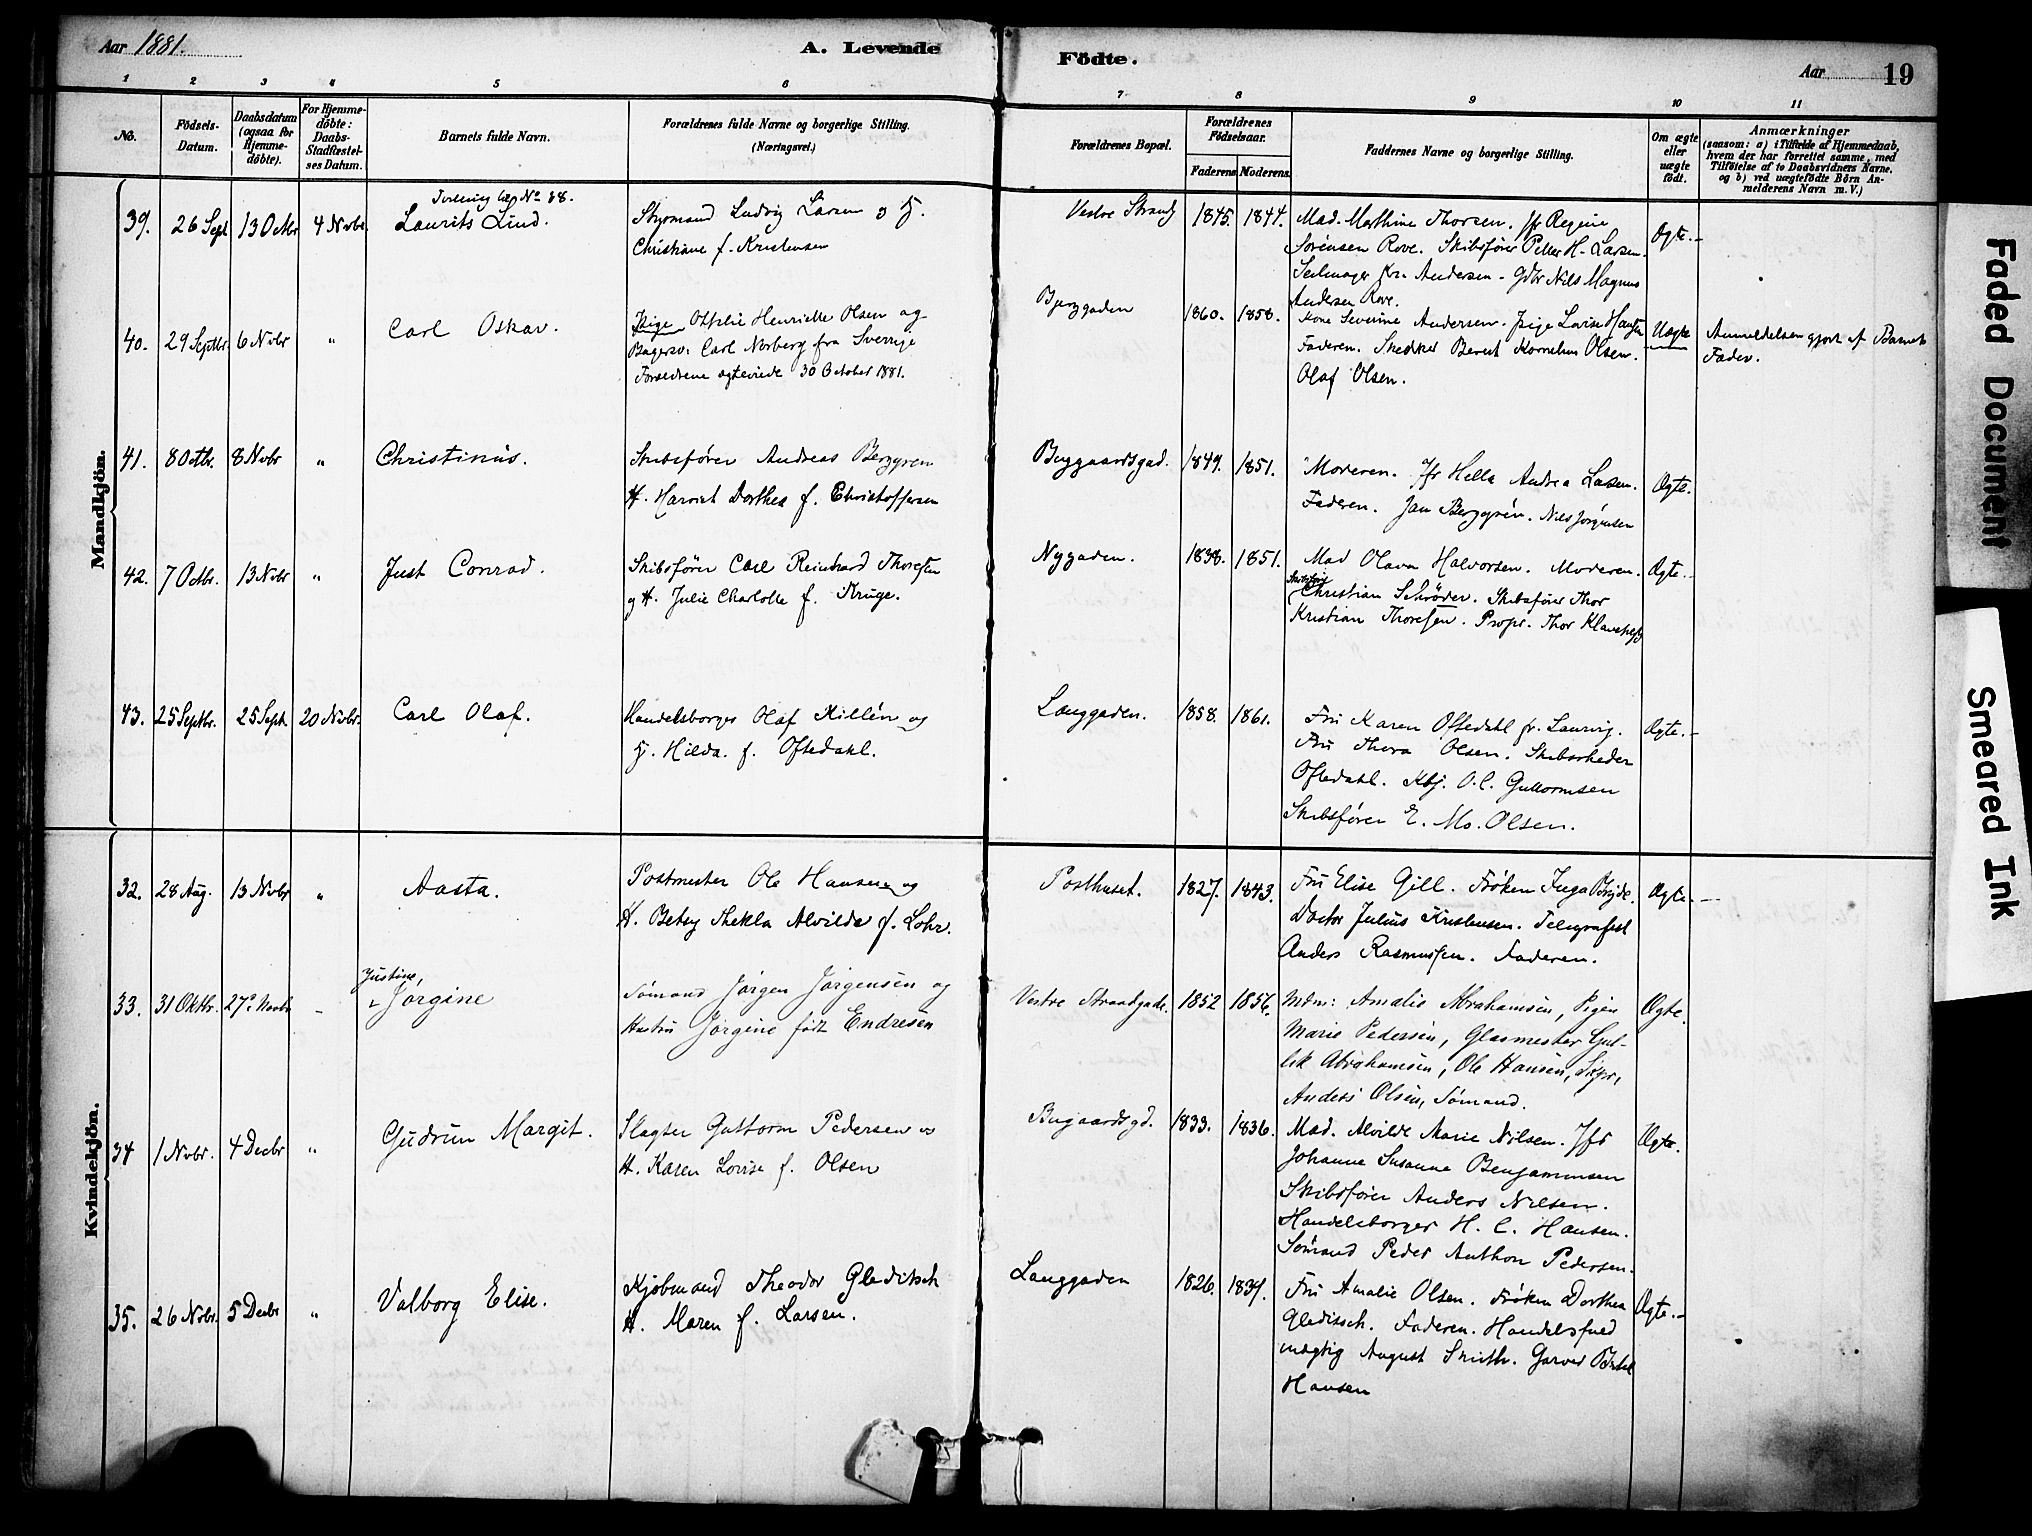 Aar 1881.
A. Levende
Födte.
Aar 19
1 2 3 4 5 6 7 8 9 10 11
No.
Födsels-Datum.
Daabsdatum (ogsaa for Hjemme-döbte).
For Hjemme-döbte: Daabs-Stadfæstel-ses Datum.
Barnets fulde Navn.
Forældrenes fulde Navne og borgerlige Stilling.
(Næringsvei.)
Forældrenes Bopæl.
Forældrenes Födselsaar.
Faderens Moderens.
Faddernes Navne og borgerlige Stilling.
Om ægte eller uægte födt.
Anmærkninger
(saasom: a) i Tilfælde af Hjemmedaab,
hvem der har forrettet samme, med
Tilföielse af to Daabsvidners Navne.
og b) ved uægtefödte Börn An-
melderens Navn m. V.)
Mandkjön.
Tvilling No 38.
39. 26 Sept 13 Octbr 4 Novbr. Laurits Lind.
Styrmand Ludvig Larsen og H.
Christiane f. Kristensen
Vestre Strandg 1845. 1844.
Mad. Mathine Thorsen. Jfr Regine
Sørensen Rove. Skibsfører Petter H. Larsen.
Seilmager Kr. Andersen - Gdbr Nils Magnus
Andersen Rove.
Ægte.-
40. 29 Septbr. 6 Novbr " Carl Oskar.
Pige Othilie Henriette Olsen og
Bagersv: Carl Norberg fra Sverrige
Forældrene ægteviede 30 October 1881.
Bjerggaden 1860. 1858.
Kone Severine Andersen. Pige Lovise Hansen
Faderen. Berent Kornelius Olsen.
Olaf Olsen.
Uægte
Anmeldelsen gjort af Barnets
Fader.
41. 8 Octbr. 8 Novbr " Christinus.
Skibsfører Andreas Berggren
H. Harriet Dorthea f. Christoffersen
Buggaardsgad. 1849. 1851.
Moderen. Jfr Hella Andrea Larsen.
Faderen. Jan Berggrén. Nils Jörgensen
Ægte.
42. 7 Octbr. 13 Novbr " Just Conrad.
Skibsfører Carl Reinhard Thoresen
og H. Julie Charlotte f. Kruge.
Nygaden. 1838. 1851.
Mad Olava Halvorsen. Moderen.
Skibsfører
Christian Schrøder. Skibsfører Thor
Kristian Thoresen. Propr. Thor
Ægte.-
43. 25 Septbr. 25 Sept. 20 Novbr. Carl Olaf.
Handelsborger Olaf Killén og
H. Hilda. f. Oftedahl.
Langgaden. 1858. 1861.
Fru Karen Oftedahl fr. Laurvig.
Fru Thora Olsen. Skibsrheder
Oftedahl. Kbj. O. C. Guttormsen
Skibsfører E. Mo. Olsen.
Ægte.-
Kvindekjön.
32. 28 Aug. 13 Novbr " Aasta.
Postmester Ole Hansen og
H. Betsy Thekla Alvilde f. Lohr.
Posthuset. 1827. 1843.
Fru Elise Gill. Frøken Inga Bryde.
Doctor Julius Kristensen. Telegrafist
Anders Rasmussen. Faderen.
Ægte.-
33. 31 Oktbr. 27de Novbr - Justine, Jørgine
Sømand Jørgen Jørgensen og
Hustru Jørgine født Endresen
Vestre Strandgade. 1852 1856.
Mdm: Amalie Abrahamsen, Pigen
Marie Pedersen, Glasmester Gul-
lik Abrahamsen, Ole Hansen, Skpr,
Anders Olsen, Sømand.
Ægte.
34 1 Novbr. 4 Decbr " Gudrun Margit.
Slagter Guttorm Pedersen og
H. Karen Lovise f. Olsen
Bugaardsgd. 1833. 1836.
Mad. Alvilde Marie Nilsen. Jfr
Johanne Susanne Benjaminsen
Skibsfører Anders Nilsen.
Handelsborger H. C. Hansen.
Sömand Peder Anthon Pedersen.
Ægte.
35. 26 Novbr. 5 Decbr " Valborg Elise.
Kjøbmand Theodor Gleditsch
H. Maren f. Larsen.
Langgaden 1826. 1837.
Fru Amalie Olsen. Frøken Dorthea
Gleditsch. Faderen. Handelsfuld-
mægtig August Smith. Garver
Hansen
Ægte.-
Faded Document
Smeared Ink